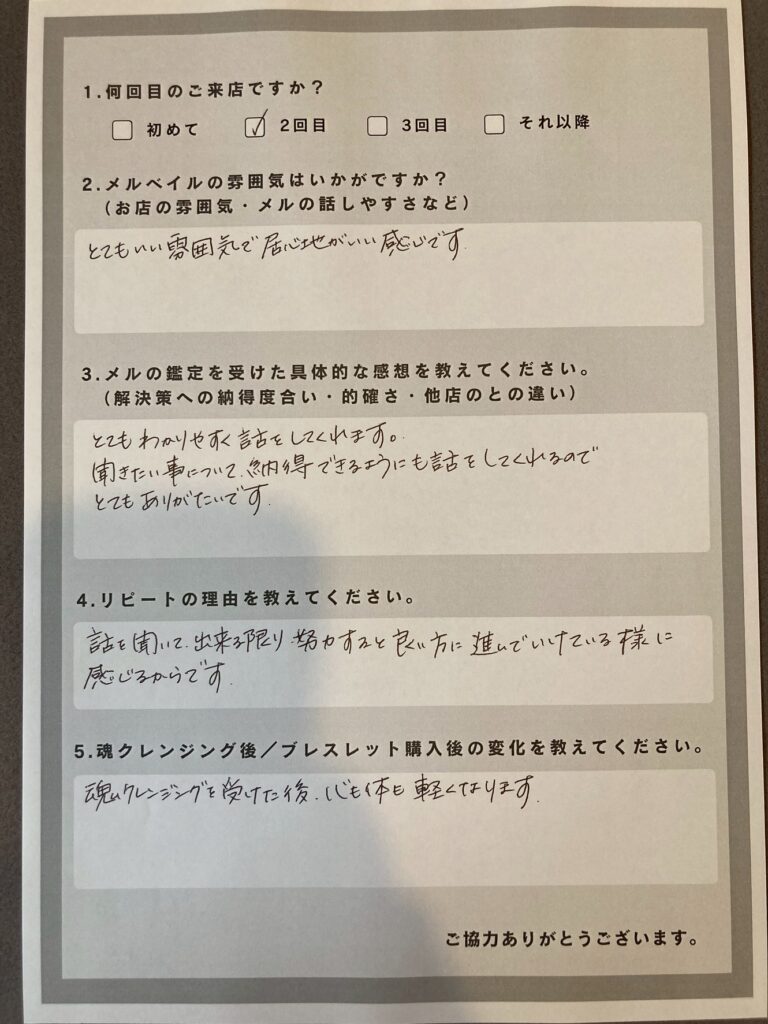 1.何回目のご来店ですか？
初めて 2回目 3回目 それ以降
2.メルベイルの雰囲気はいかがですか？
（お店の雰囲気・メルの話しやすさなど）
とてもいい雰囲気で居心地がいい感じです.
3.メルの鑑定を受けた具体的な感想を教えてください。
（解決策への納得度合い・的確さ・他店のとの違い）
とてもわかりやすく話をしてくれます。
聞きたい事について、納得できるようにも話をしてくれるので
とてもありがたいです.
4.リピートの理由を教えてください。
話を聞いて、出来る限り努力すると良い方に進んでいけている様に
感じるからです.
5.魂クレンジング後／ブレスレット購入後の変化を教えてください。
魂クレンジングを受けた後、心も体も軽くなります.
ご協力ありがとうございます。